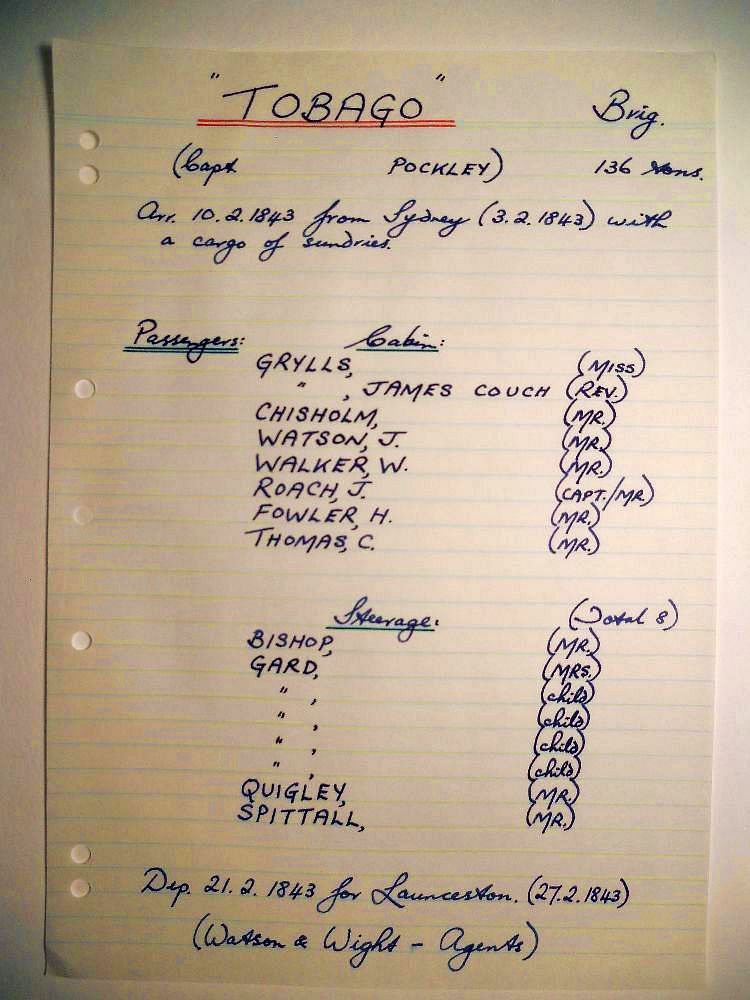 "TOBAGO" Brig.
(Capt POCKLEY) 136 tons.
Arr. 10.2.1843 from Sydney (3.2.1843) with
a cargo of sundries.
Passengers: Cabin:
GRYLLS, (MISS)
" , JAMES COUCH (REV.)
CHISHOLM, (MR.)
WATSON, J. (MR.)
WALKER, W. (MR.)
ROACH, J. (CAPT./MR.)
FOWLER, H. (MR.)
THOMAS, C. (MR.)
Steerage: (Total 8)
BISHOP, (MR.)
GARD, (MRS.)
" , (child)
" , (child)
" , (child)
" , (child)
QUIGLEY, (MR.)
SPITTALL, (MR.)
Dep. 21.2.1843 for Launceston. (27.2.1843)
(Watson & Wight - Agents)